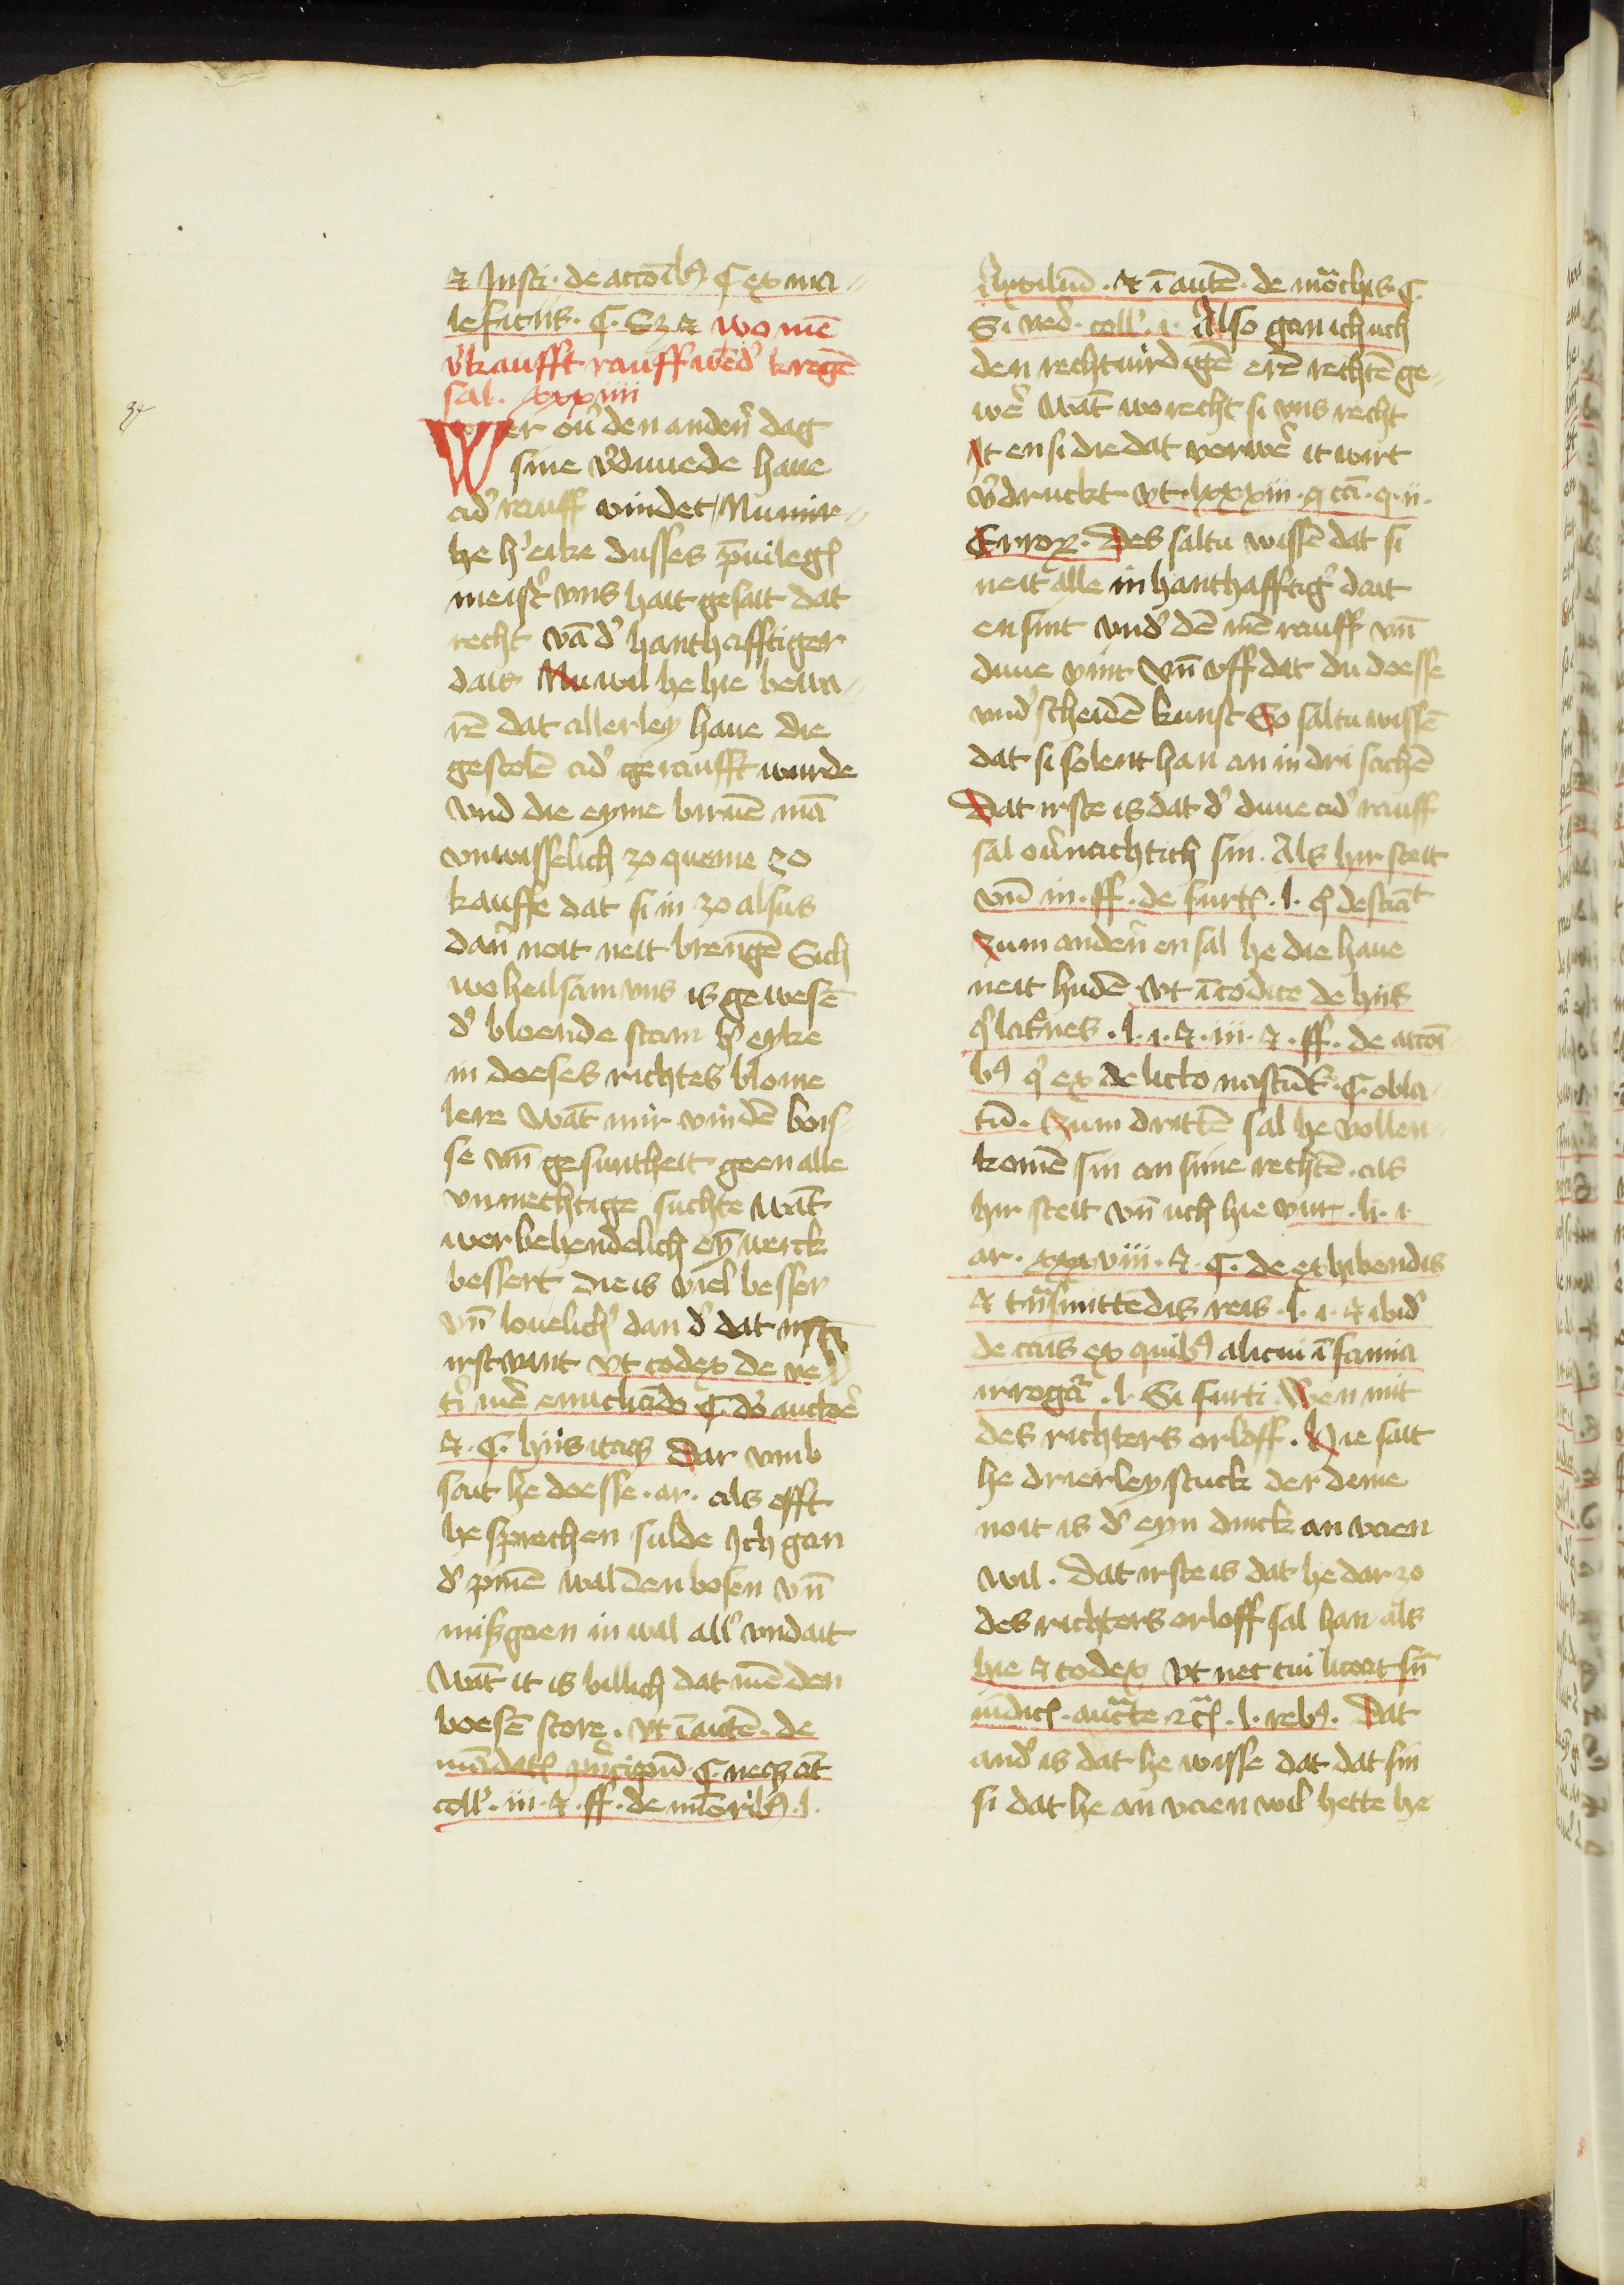 ⁊ Insti. de actōibꝰ ¶ ex ma-
leficiis. ¶. Sz ⁊ wo mē
v̾kaufft rauff wed̾ kregē
sal. xxxiiii
Wer ou̾ den ander̄ dag
sine v̾duuede haue
ad̾ rauff vindet / Nu mir-
ke h̾ eike dusses p̄uileg
meist̾ vns hait gesait dat
recht vā d̾ hanthafftiger
dait Nu wil he hie bewa-
rē dat allerley haue die
gestolē ad̾ geraufft wurde
vnd die eyme biruē mā
vnwisselich zo queme zo
kauffe dat si in zo alsus
dan̄ noit neit brengē Sich
wo heilsam vns is gewesē
d̾ bloende stam h̾ eyke
in doeses richtes blome
lere Wāt mir vindē bois-
se vn̄ gesuntheit geen alle
vnmechtige suchte wāt
wer behendelich eyn̄ werck
bessert die is viel besser
vn̄ louelich̾ dan d̾ dat
irst vant vt codex de ve-
t̾i iu̾e enucliādo ¶. d̾o auctē
⁊. ¶. hiis itaqꝫ Dar vmb
sait he doesse. ar. als offt
he sprechen sulde Ich gan
d̾ pinē wal den bosen vn̄
misgoen in wal all̾ vndait
Wāt it is billich dat mē den
boesē store. vt ī autē. de
mādat p̾ncipū ¶. neqꝫ āt
coll̾. iii. ⁊. ff. de mīoribꝰ. l.
Auxiliū. ⁊ ī autē. de mōchis. ¶.
Si ved̾. coll̾. i. Also gan ich uch
den rechtuirdigē erē rechtē ge-
we̾ Wāt wo recht si vns recht
It en si die dat vorwe̾ it wirt
v̾druckt vt. lxxxiii. q cā. q. ii.
Error. Des saltu wissē dat si
neit alle in hanthafftig̾ dait
en sint vnd̾ dē mē rauff vn̄
duue vint Vn̄ vff dat du doesse
vnd̾scheidē kunst So saltu wissē
dat si solent han an in dri sachē
Dat irste is dat d̾ duue ad̾ rauff
sal ou̾nachtich sin. Als hir steit
vn̄ in. ff. de furt. l. q̄ desciāt
Zum ander̄ en sal he die haue
neit hudē vt ī codice de hiis
q̾ latrnes. l. i. ⁊. iii. ⁊. ff. de actōi
bꝰ q̾ ex delicto nascūt. ¶. obla-
tū. Zum drittē sal he vollen-
komē sin an sime rechtē. als
hir steit vn̄ uch hie vur. li. i.
ar. xxxviii. ⁊. ¶. de exhibendis
⁊ trāsmittēdis reis. l. i. ⁊ ibid̾
de cais ex quibꝰ alicui īfamia
irrogāt. l. Si furti. Wen mit
des richters orloff. Hie sait
he drierley stuck der deme
noit is d̾ eyn dinck an vaen
wil. Dat irste is dat he dar zo
des richters orloff sal han als
hie ⁊ codex vt nec cui liceat sn̄
iudic. auctte ⁊c. l. rebꝰ. Dat
and̾ is dat he wisse dat dat sin
si dat he an vaen wil hette he